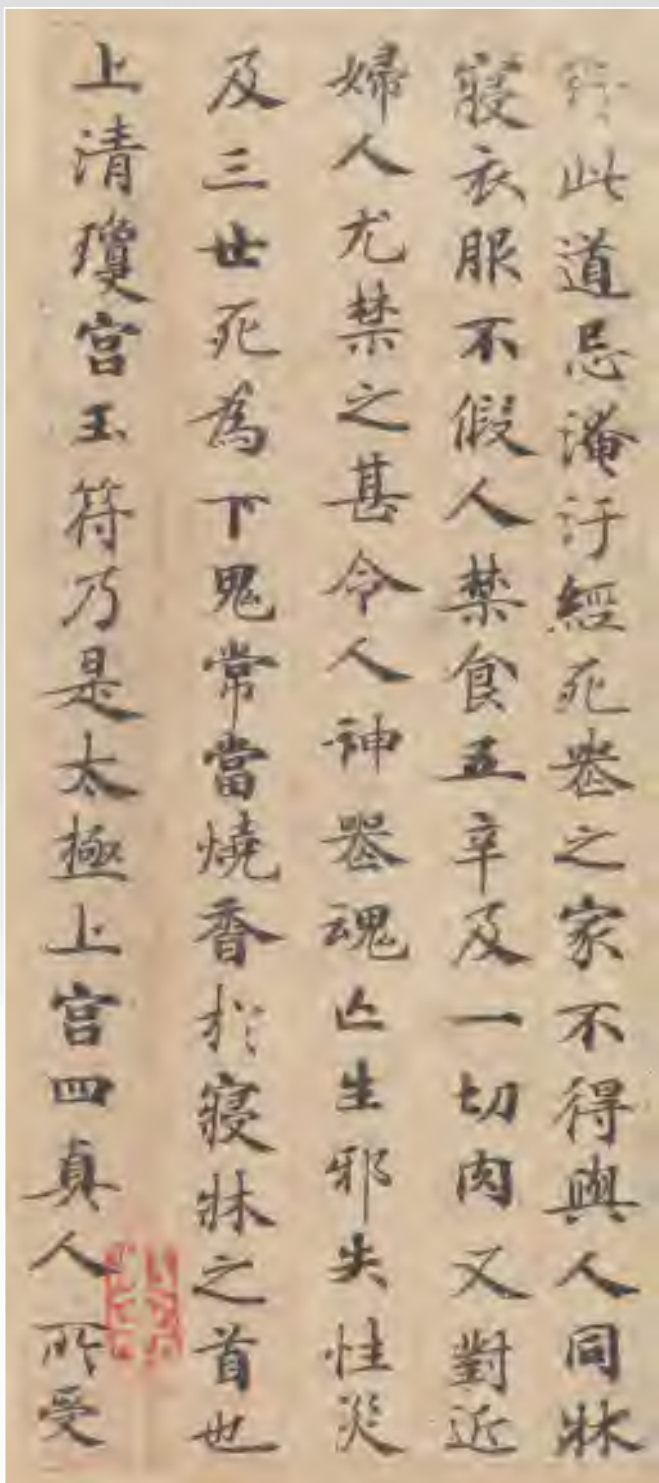 此道忌淹汙經死喪之家不得與人同牀
寢衣服不假人禁食五辛及一切肉又對近
婦人尤禁之甚令人神喪魂亡生邪失性災
及三世死為下鬼常當燒香於寢牀之首也
上清瓊宮玉符乃是太極上宮四真人所受